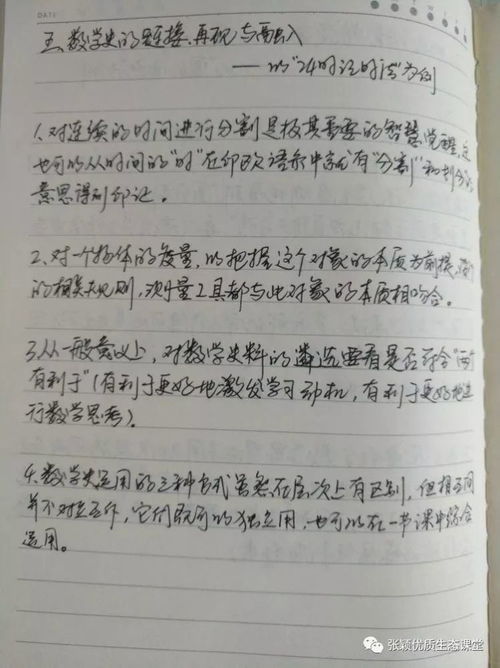 DATE
五、数学史的链接、再现与融入
——以"24时计时法"为例
1.对连续的时间进行分割是极其重要的智慧觉醒,这
也可以从时间的"时"在印欧语系中就有"分割"和划分的
意思得到印证。
2、对一个物体的度量,以把握这个对象的本质为前提,
的相关规则,测量工具都与此对象的本质相吻合。
3从一般意义上,对数学史料的遴选要看是否符合"两个
有利于"(有利于更好地激发学习动机,有利于更好地进
行数学思考)。
4.数学史运用的三种方式虽然在层次上有区别,但相互间
并不对立互斥,它们既可以独立用,也可以在一节课中综合
运用。
张颖优质生态课堂